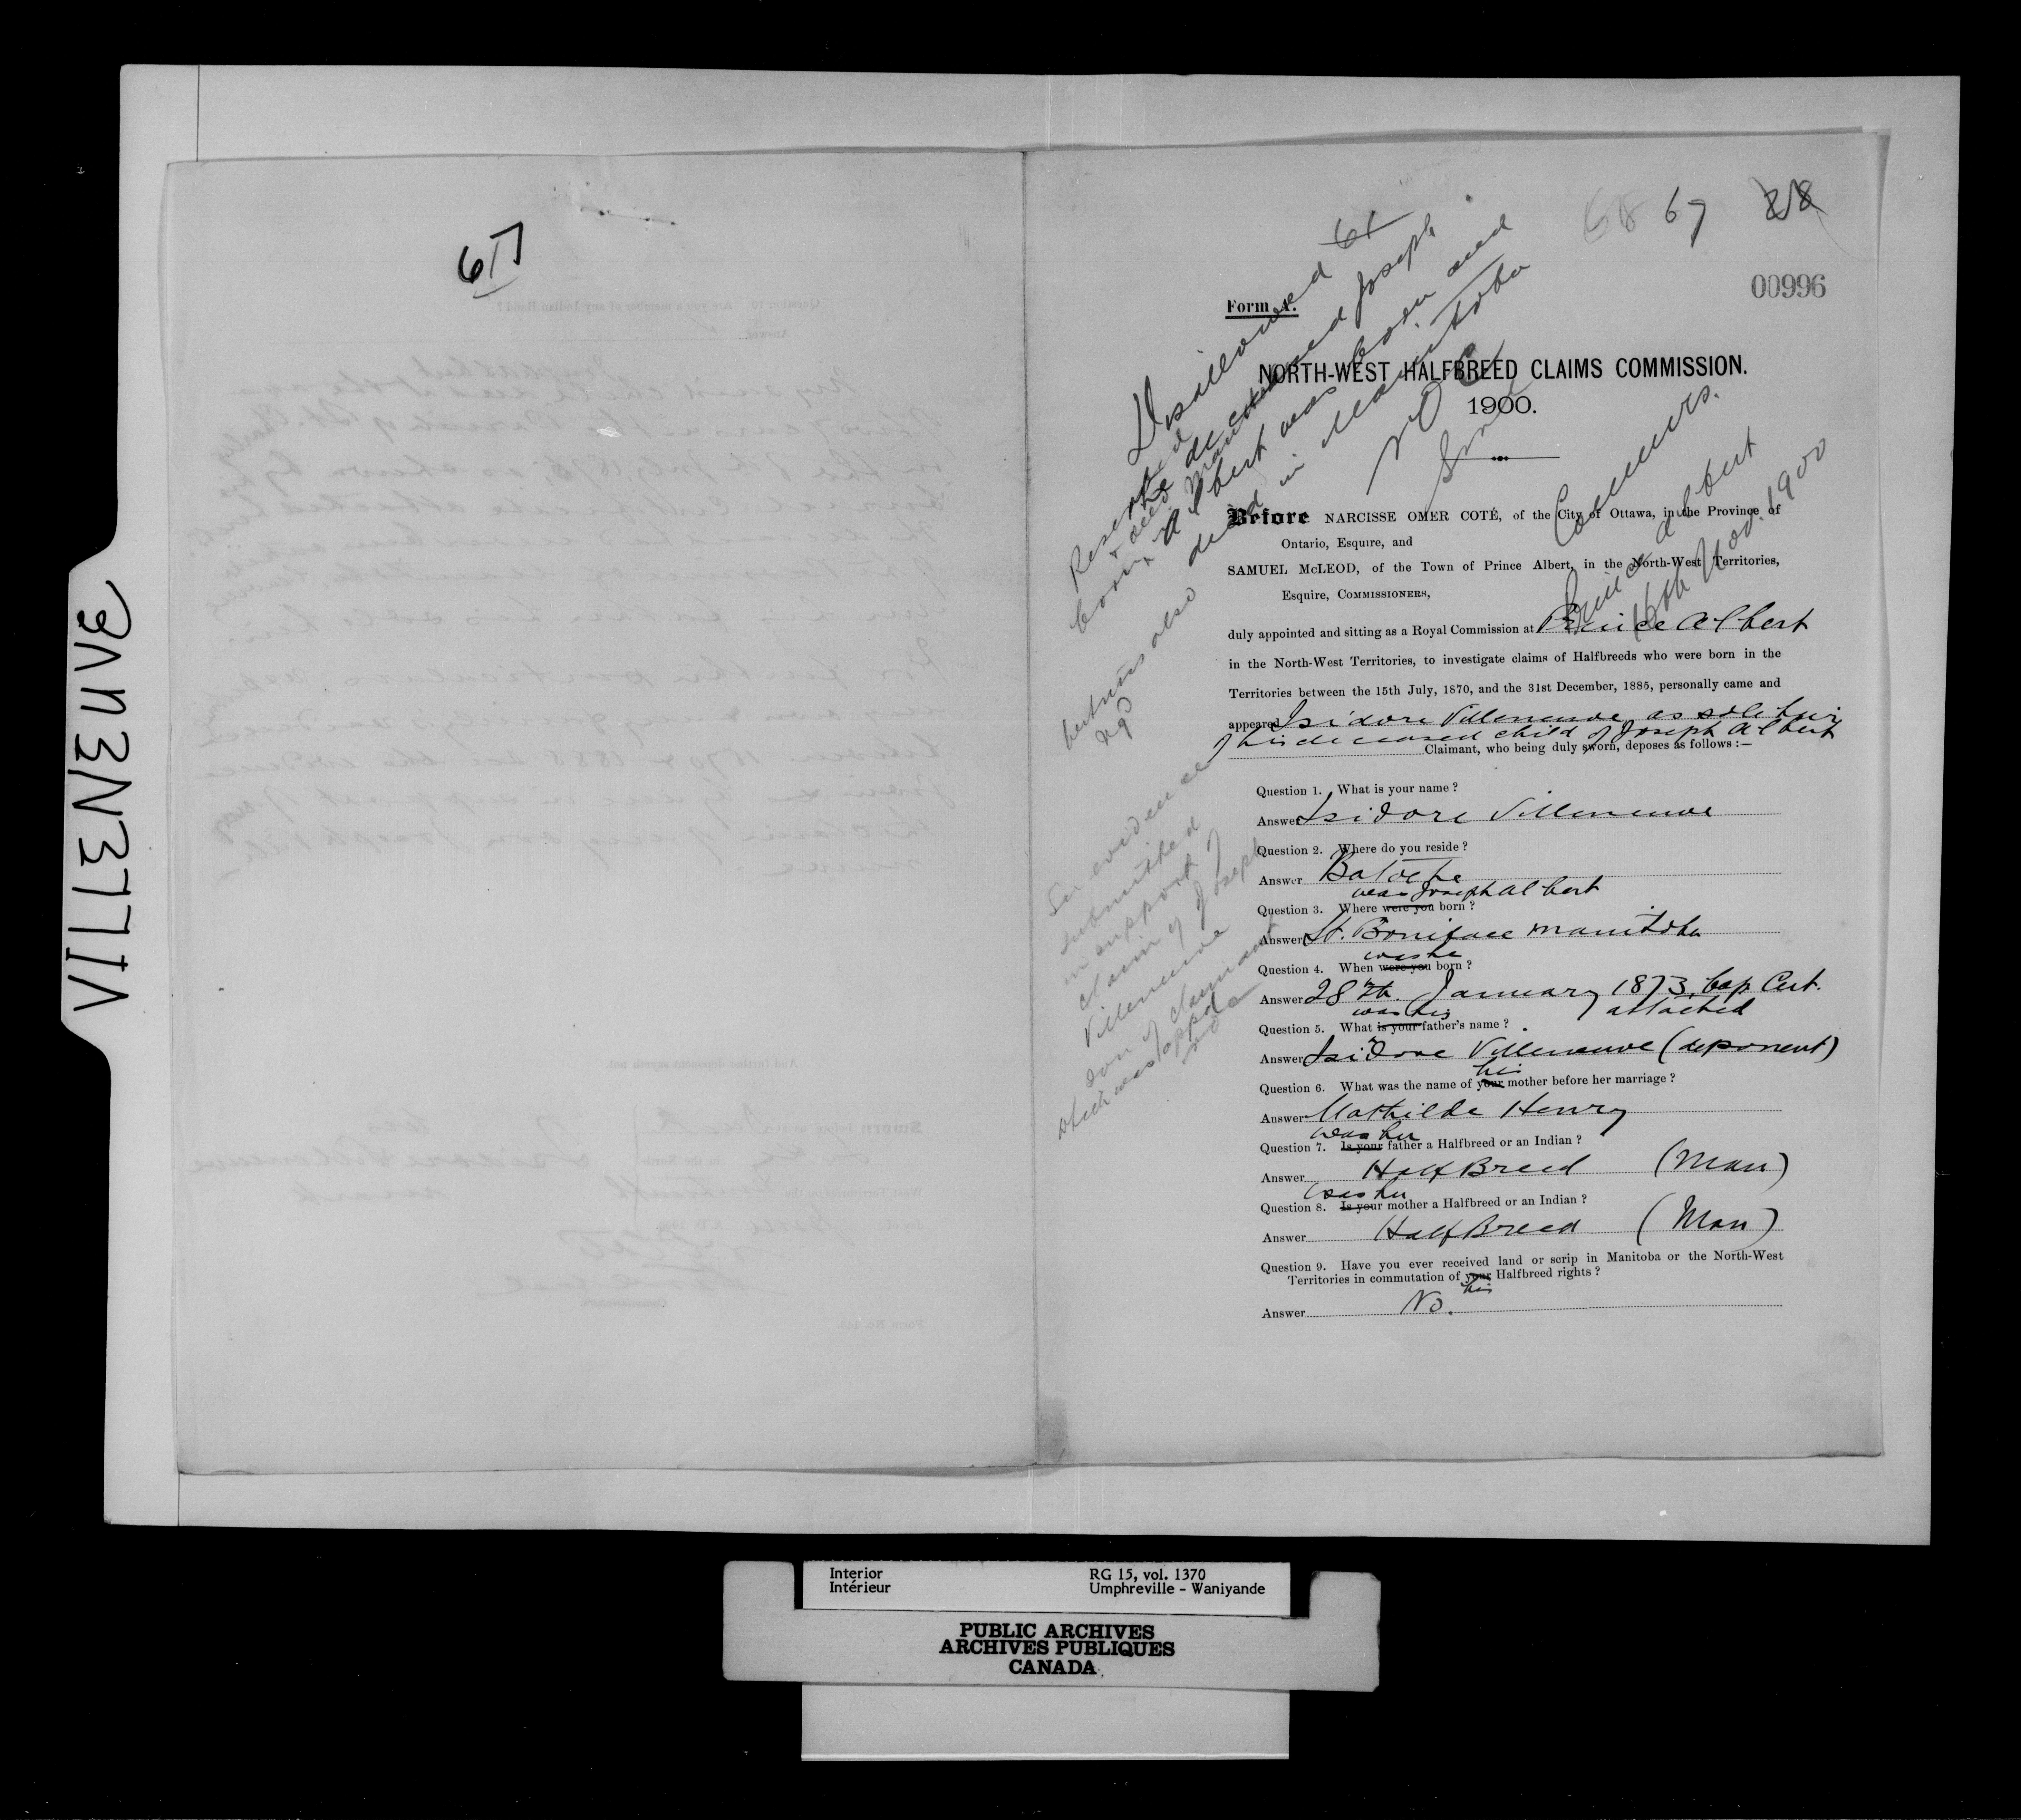 VILLENEUVE
617
68 67 28
00996
Form A.
Disallowed 61
Reserved
the deceased Joseph
Albert was born and
died in Manitoba
NOC
Smcl
Commrs.
Prince Albert
16th Nov. 1900
NORTH-WEST HALFBREED CLAIMS COMMISSION.
1900.
Before NARCISSE OMER COTÉ, of the City of Ottawa, in the Province of
Ontario, Esquire, and
SAMUEL McLEOD, of the Town of Prince Albert, in the North-West Territories,
Esquire, COMMISSIONERS,
duly appointed and sitting as a Royal Commission at Prince Albert
in the North-West Territories, to investigate claims of Halfbreeds who were born in the
Territories between the 15th July, 1870, and the 31st December, 1885, personally came and
appeared Isidore Villeneuve as sole heir
of his deceased child of Joseph Albert
Claimant, who being duly sworn, deposes as follows :—
Question 1. What is your name ?
Answer Isidore Villeneuve
Question 2. Where do you reside ?
Answer Batoche
was Joseph Albert
Question 3. Where were you born ?
Answer St. Boniface Manitoba
was he
Question 4. When were you born ?
Answer 28th January 1873, bap. Cert.
attached
was his
Question 5. What is your father's name ?
Answer Isidore Villeneuve (deponent)
his
Question 6. What was the name of your mother before her marriage ?
Answer Mathilde Henry
was his
Question 7. Is your father a Halfbreed or an Indian ?
Answer Half Breed (Man)
was his
Question 8. Is your mother a Halfbreed or an Indian ?
Answer Half Breed (Man)
Question 9. Have you ever received land or scrip in Manitoba or the North-West
Territories in commutation of your Halfbreed rights ?
his
Answer No.
See evidence
submitted
in support of
claim of Joseph
Villeneuve
son of claimant
which was appd
Interior
Intérieur
RG 15, vol. 1370
Umphreville - Waniyande
PUBLIC ARCHIVES
ARCHIVES PUBLIQUES
CANADA